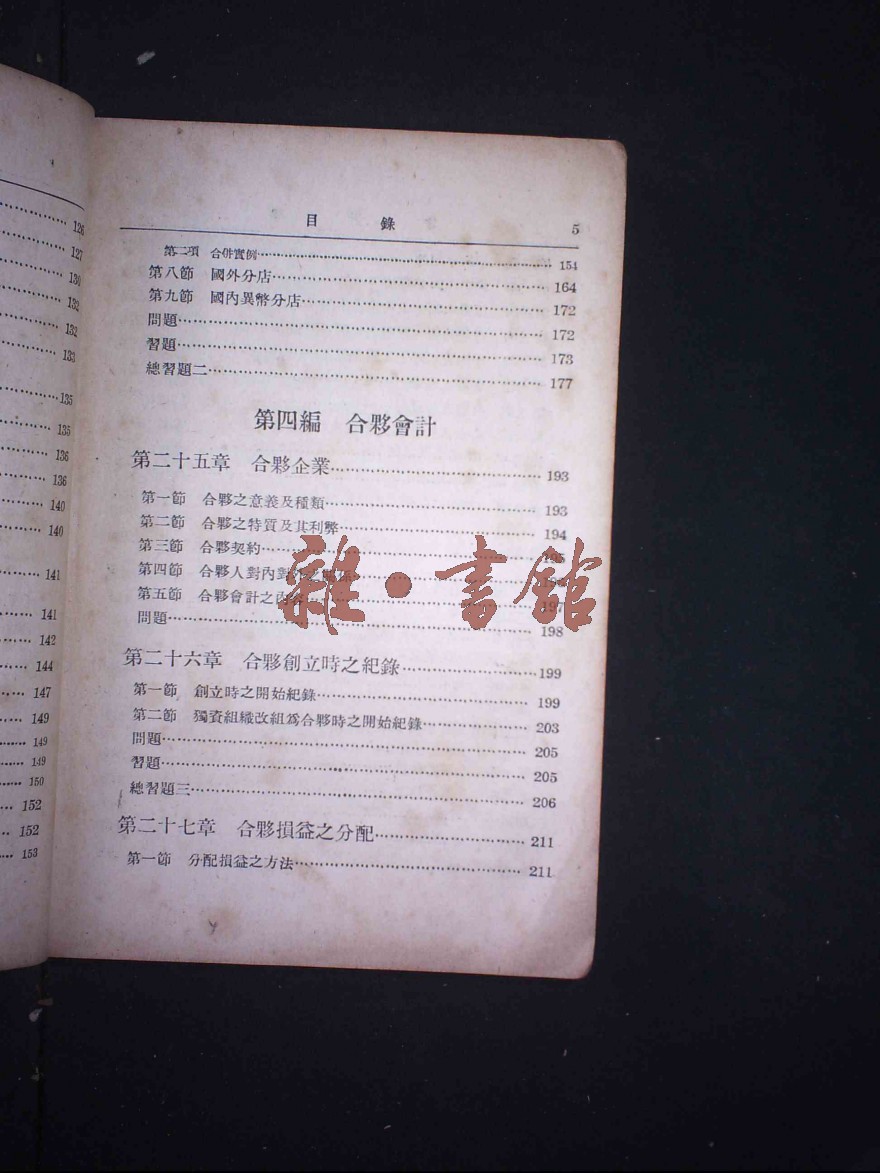 126
127
130
132
132
133
135
135
136
136
140
140
141
141
142
144
147
149
149
149
150
152
152
153
目 錄 5
第二項 合併實例 154
第八節 國外分店 164
第九節 國內異幣分店 172
問題 172
習題 173
總習題二 177
第四編 合夥會計
第二十五章 合夥企業 193
第一節 合夥之意義及種類 193
第二節 合夥之特質及其利弊 194
第三節 合夥契約 195
第四節 合夥人對內對外之關係
第五節 合夥會計之內容 197
問題 198
第二十六章 合夥創立時之紀錄 199
第一節 創立時之開始紀錄 199
第二節 獨資組織改組爲合夥時之開始紀錄 203
問題 205
習題 205
總習題三 206
第二十七章 合夥損益之分配 211
第一節 分配損益之方法 211
雜·書館